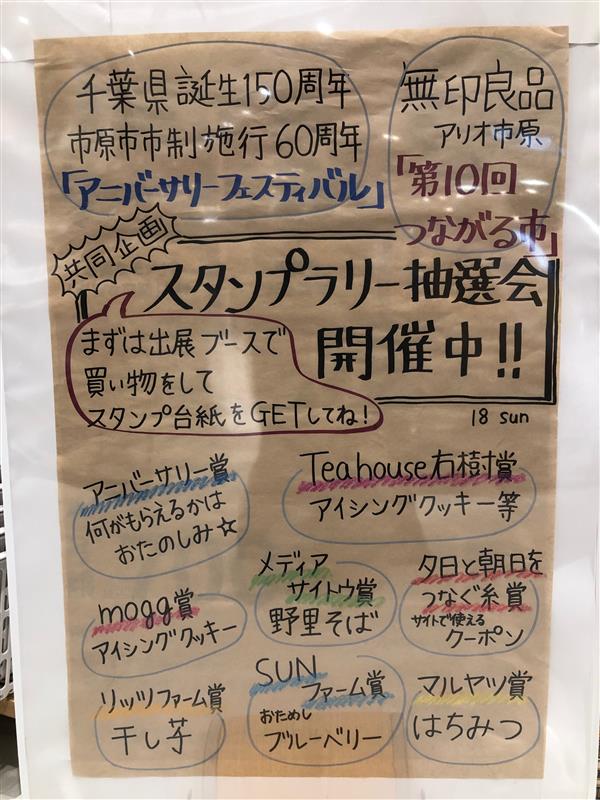 千葉県誕生150周年
市原市市制施行60周年
「アニバーサリーフェスティバル」
無印良品
アリオ市原
「第10回
つながる市」
共同企画
スタンプラリー抽選会
開催中!!
まずは出展ブースで
買い物をして
スタンプ台紙をGETしてね!
18 sun
アニバーサリー賞
何がもらえるかは
おたのしみ☆
Teahouse右樹賞
アイシングクッキー等
mogg賞
アイシングクッキー
メディア
サイトウ賞
野里そば
夕日と朝日を
つなぐ糸賞
サイトで使える
クーポン
リッツファーム賞
干し芋
SUN
ファーム賞
おためし
ブルーベリー
マルヤツ賞
はちみつ